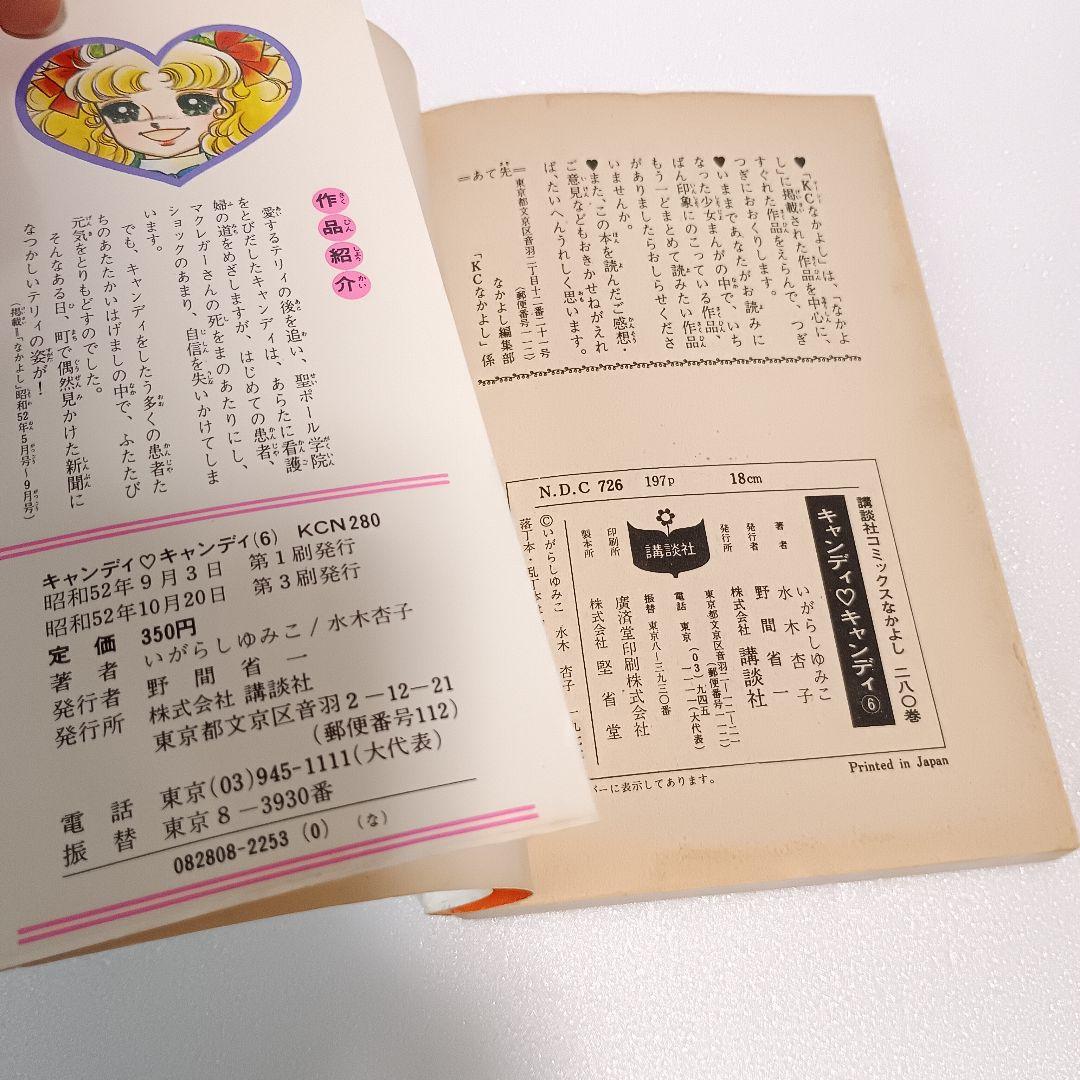 作品紹介
愛するテリィの後を追い、聖ポール学院
をとびだしたキャンディは、あらたに看護
婦の道をめざしますが、はじめての患者、
マクレガーさんの死をまのあたりにし、
ショックのあまり、自信を失いかけてしま
います。
でも、キャンディをしたう多くの患者た
ちのあたたかいはげましの中で、ふたたび
元気をとりもどすのでした。
そんなある日、町で偶然見かけた新聞に
なつかしいテリィの姿が!
(掲載=「なかよし」昭和52年5月号〜9月号)
キャンディ♡キャンディ(6) KCN280
昭和52年9月3日 第1刷発行
昭和52年10月20日 第3刷発行
定価 350円
著者 いがらしゆみこ/水木杏子
発行者 野間省一
発行所 株式会社 講談社
東京都文京区音羽2-12-21
(郵便番号112)
電話 東京(03)945-1111(大代表)
振替 東京8-3930番
082808-2253 (0) (な)
♥「KCなかよし」は、「なかよ
し」に掲載された作品を中心に、
すぐれた作品をえらんで、つぎ
つぎにおおくりします。
♥いままであなたがお読みに
なった少女まんがの中で、いち
ばん印象にのこっている作品、
もう一どまとめて読みたい作品
がありましたらおしらせくださ
いませんか。
♥また、この本を読んだご感想・
ご意見などもおきかせねがえれ
ば、たいへんうれしく思います。
=あて先=
東京都文京区音羽二丁目十二番二十一号
(郵便番号一一二)
なかよし編集部
「KCなかよし」係
N.D.C 726 197p 18cm
講談社コミックスなかよし 二八〇巻
キャンディ♡キャンディ⑥
著者 いがらしゆみこ
水木杏子
発行者 野間省一
発行所 株式会社 講談社
東京都文京区音羽二-一二-二一
(郵便番号一一二)
電話 東京(03)九四五
一一一一(大代表)
振替 東京八-三九三〇番
講談社
印刷所 廣済堂印刷株式会社
製本所 株式会社 堅省堂
©いがらしゆみこ 水木杏子
落丁本・乱丁本は
バーに表示してあります。
Printed in Japan